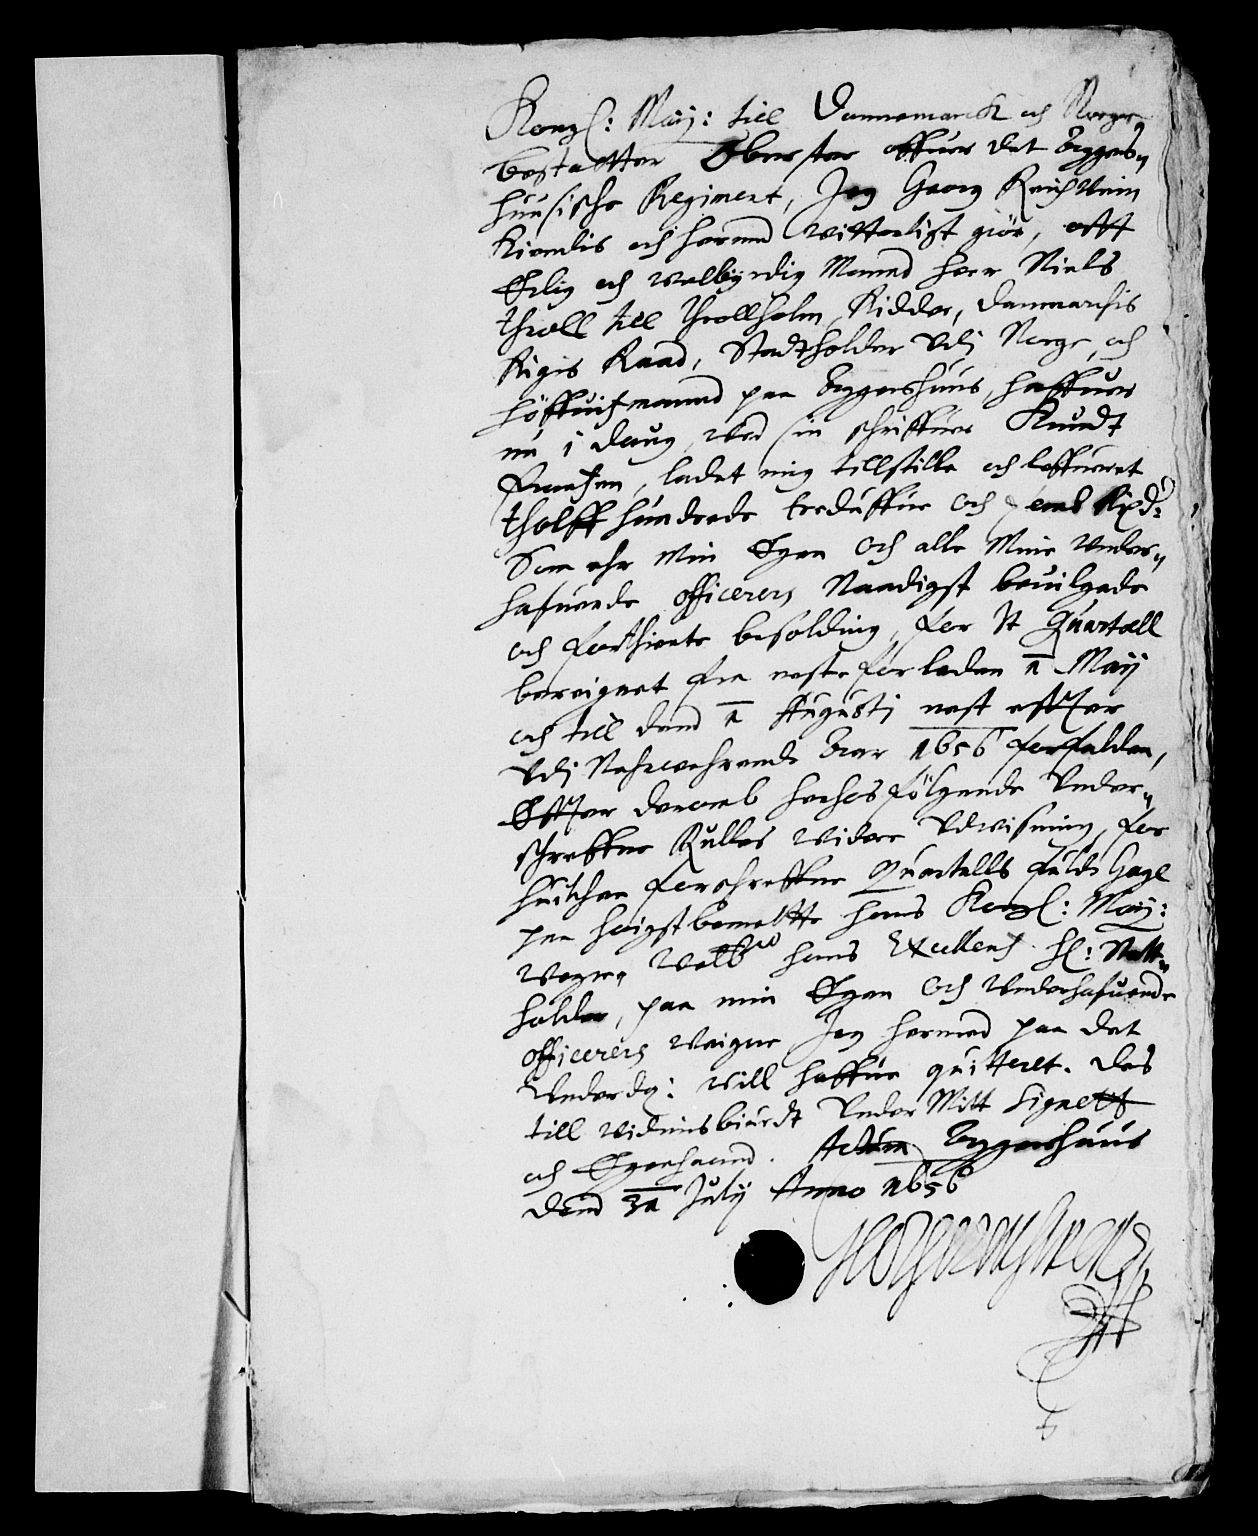 Kongl: May: till Dannemarck och Norge
bestalter Oberster offuer det Aggers„
huusische Regiment, Jeg Georg Reichwein
Kiendis och hermed witterligt giör, att
Erlig och welbyrdig Mannd herr Niels
throll till throllholm, Ridder, Danmarchis
Rigis Raad, Stadtholder Udj Norge, och
höffuitzmannd paa Aggershuus, haffuer
nu i daug, ved sin schriffuer Knudt
Frantzen, ladet mig tillstille och leffueret
tholff hundrede tredusfiue och femb Rixd:
Som ehr Min Egen och alle Mine Under„
hafuende officerers Naadigst beuilgede
och forthiente besolding, for It Quartall
bereignet fra nest forleden 1 May
och till dend 1 Augusti nest effter
Udj Nehrwehrende Aar 1656 forfalden,
Effter deromb herhos følgende Under„
schreffne Rulles videre Udvisning, for
huilchen forschreffne Quartalls fulde Gage
paa høigstbemelte hans Kongl: May:
wegne Welb: hans Excellens Hr: Statt„
holder, paa min Egen och Underhafuende
officerers Weigne Jeg hermed paa det
Underdg: will haffue quitteret. Des
till vidnisbiurdt Under Mitt Signett
och Egenhaand. Actum Aggershuus
dend 31 July Anno 1656